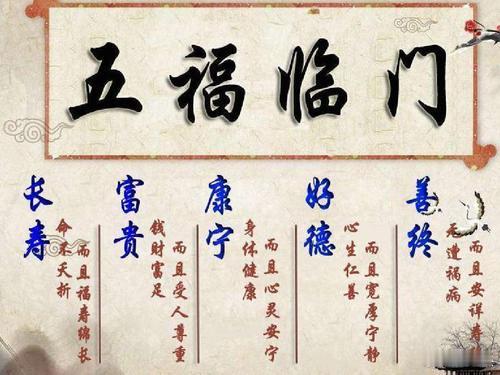 五福临门
长寿
命不夭折
而且福寿绵长
富贵
钱财富足
而且受人尊重
康宁
身体健康
而且心灵安宁
好德
心生仁善
而且宽厚宁静
善终
遭祸病
而且安详寿